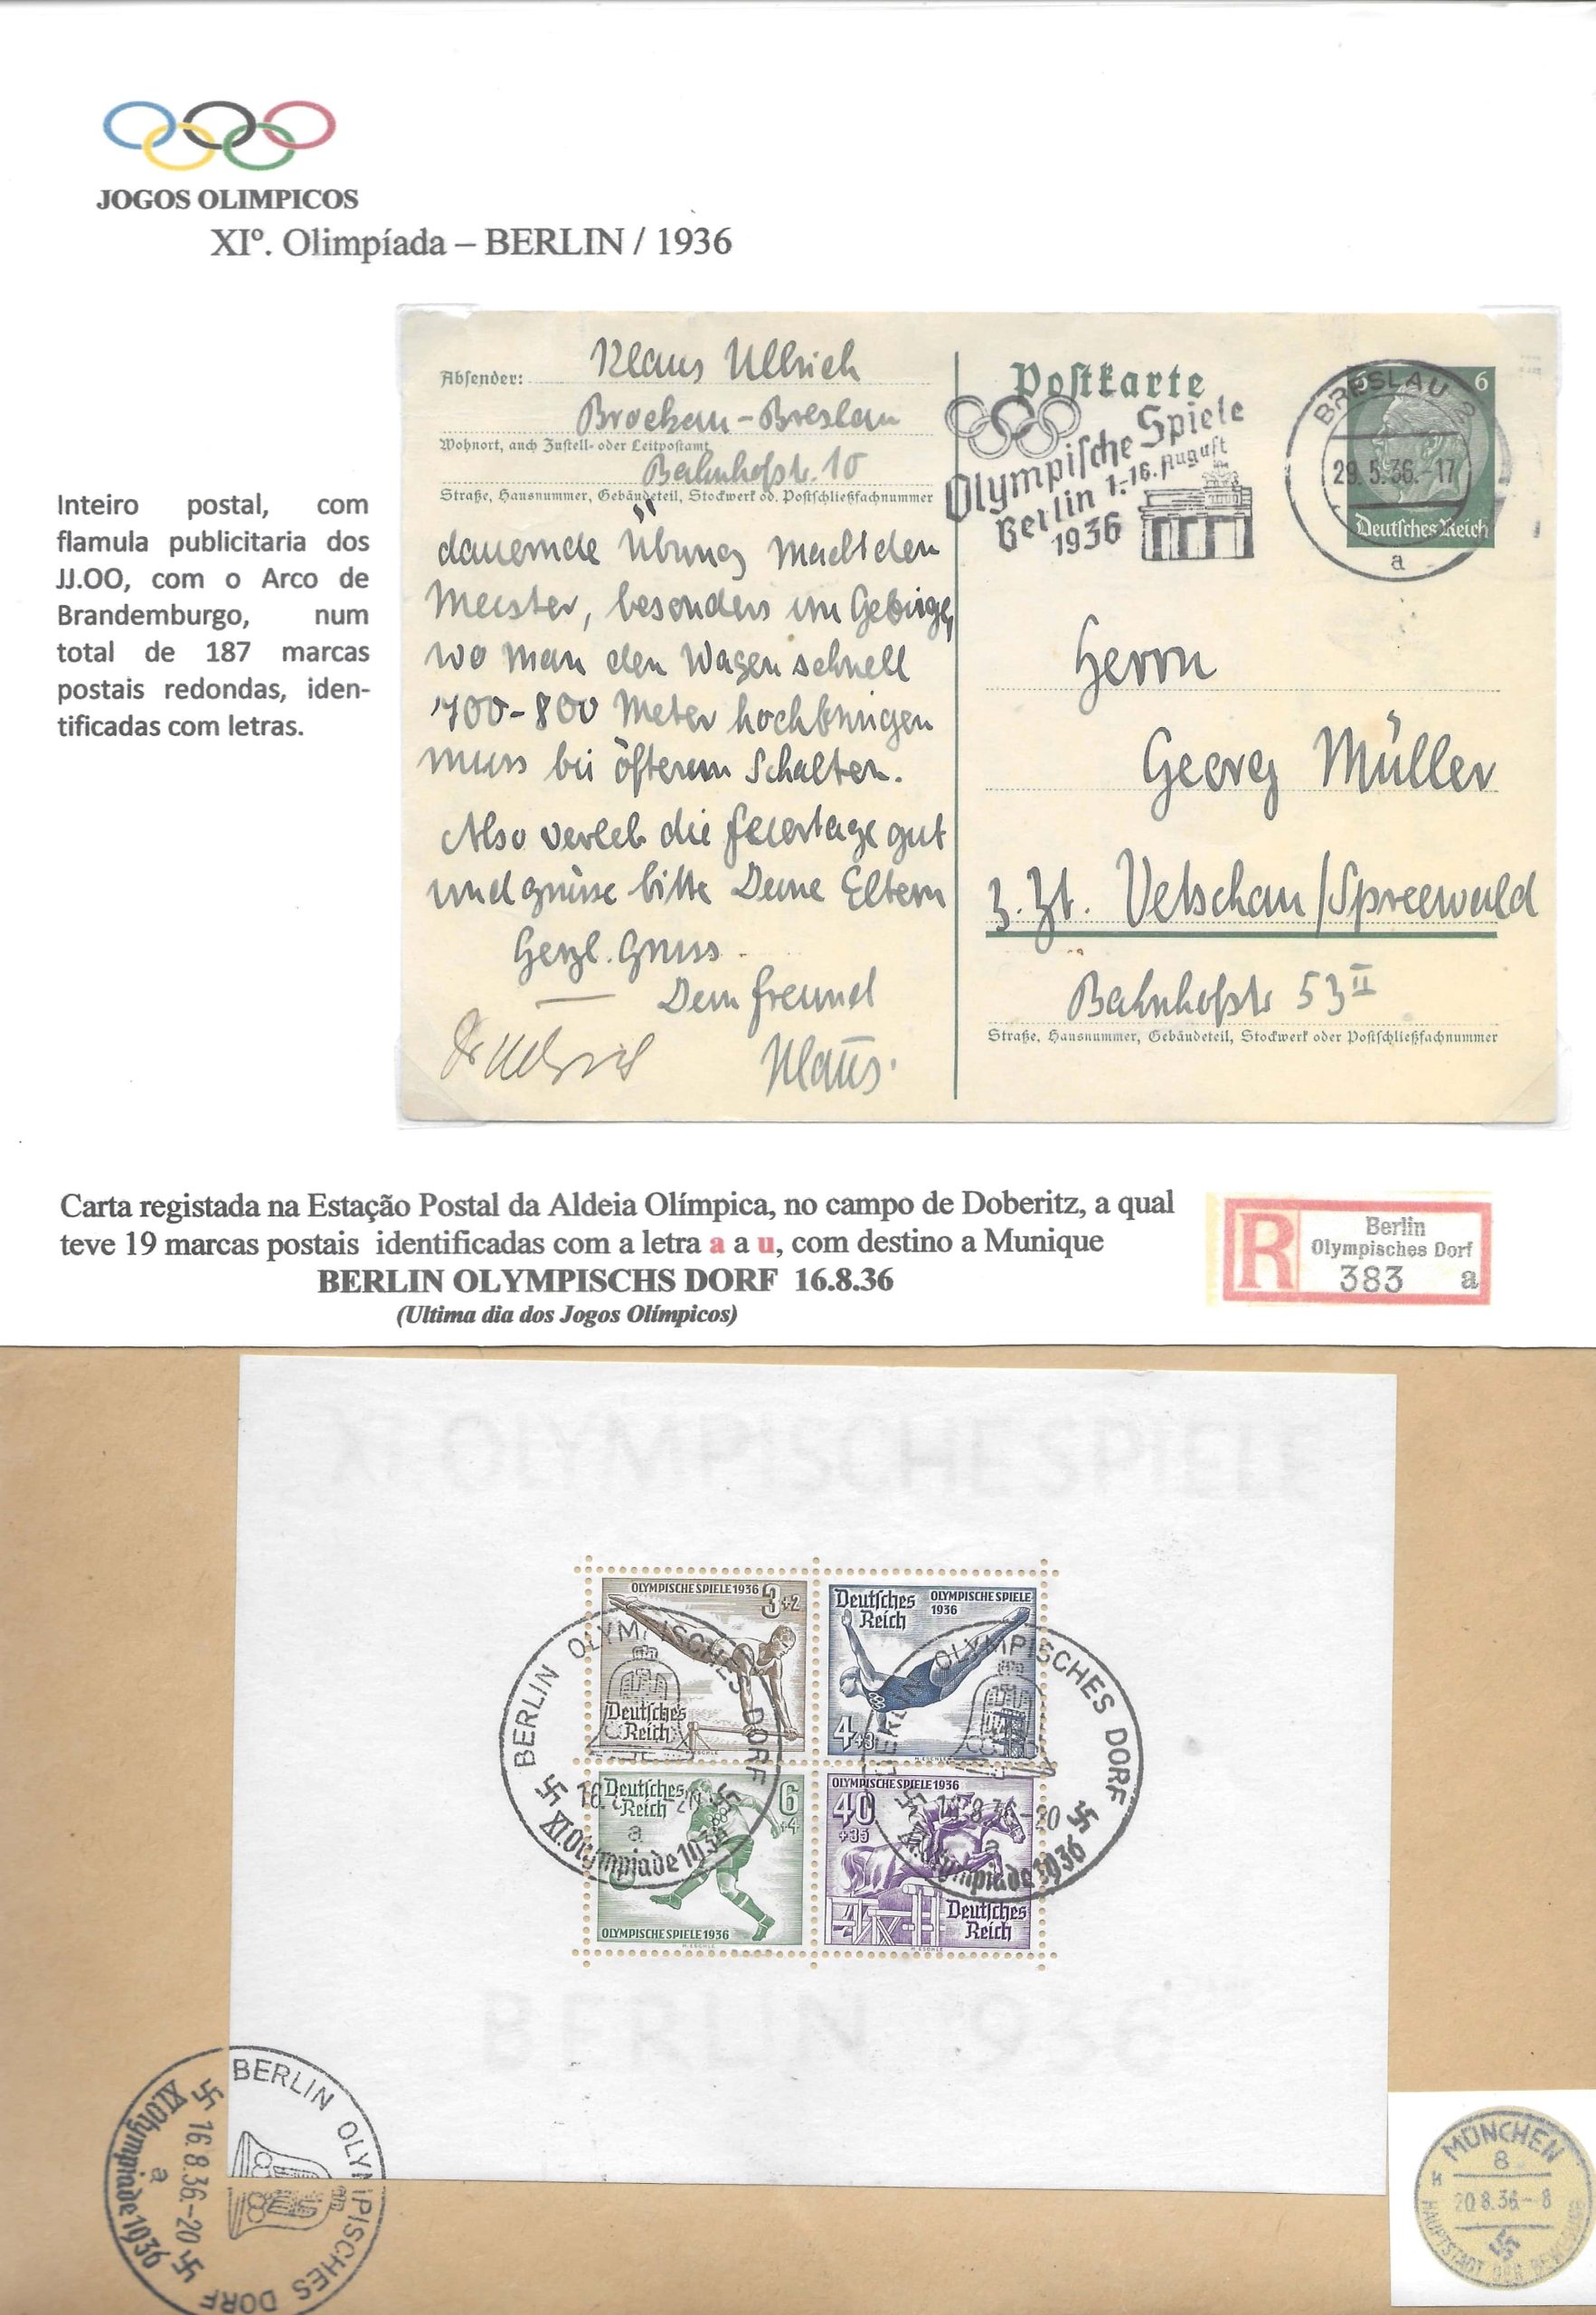 JOGOS OLIMPICOS
XIº. Olimpíada – BERLIN / 1936
Inteiro postal, com
flamula publicitaria dos
JJ.OO, com o Arco de
Brandemburgo, num
total de 187 marcas
postais redondas, iden-
tificadas com letras.
Absender: Klaus Ullrich
Brockau-Breslau
Wohnort, auch Zustell- oder Leitpostamt
Bahnhofstr. 10
Straße, Hausnummer, Gebäudeteil, Stockwerk od. Postschließfachnummer
dauernde Übung macht den
Meister, besonders im Gebirge,
wo man den Wagen schnell
700-800 Meter hochbringen
muss bei öfterem Schalten.
Also verleb die Feiertage gut
und grüsse bitte Deine Eltern
Herzl. Gruss
Dein Freund
Klaus.
Postkarte
Olympische Spiele
Berlin 1.-16. August
1936
BRESLAU 2
29.5.36.-17
a
6
Deutsches Reich
Herrn
Georg Müller
z. Zt. Vetschau/Spreewald
Bahnhofstr 53 II
Straße, Hausnummer, Gebäudeteil, Stockwerk oder Postschließfachnummer
Carta registada na Estação Postal da Aldeia Olímpica, no campo de Doberitz, a qual
teve 19 marcas postais identificadas com a letra a a u, com destino a Munique
BERLIN OLYMPISCHS DORF 16.8.36
(Ultima dia dos Jogos Olímpicos)
R
Berlin
Olympisches Dorf
383 a
XI OLYMPISCHE SPIELE
OLYMPISCHE SPIELE 1936 3+2
Deutsches
Reich
Deutsches
Reich
OLYMPISCHE SPIELE
1936
4+3
Deutsches
Reich
6
+4
OLYMPISCHE SPIELE 1936
OLYMPISCHE SPIELE 1936
40
+35
Deutsches
Reich
BERLIN OLYMPISCHES DORF
a
XI.Olympiade 1936
BERLIN OLYMPISCHES DORF
a
XI.Olympiade 1936
BERLIN 1936
BERLIN OLYMPISCHES DORF
16.8.36.-20
a
XI.Olympiade 1936
MÜNCHEN
8
20.8.36-8
HAUPTSTADT DER BEWEGUNG